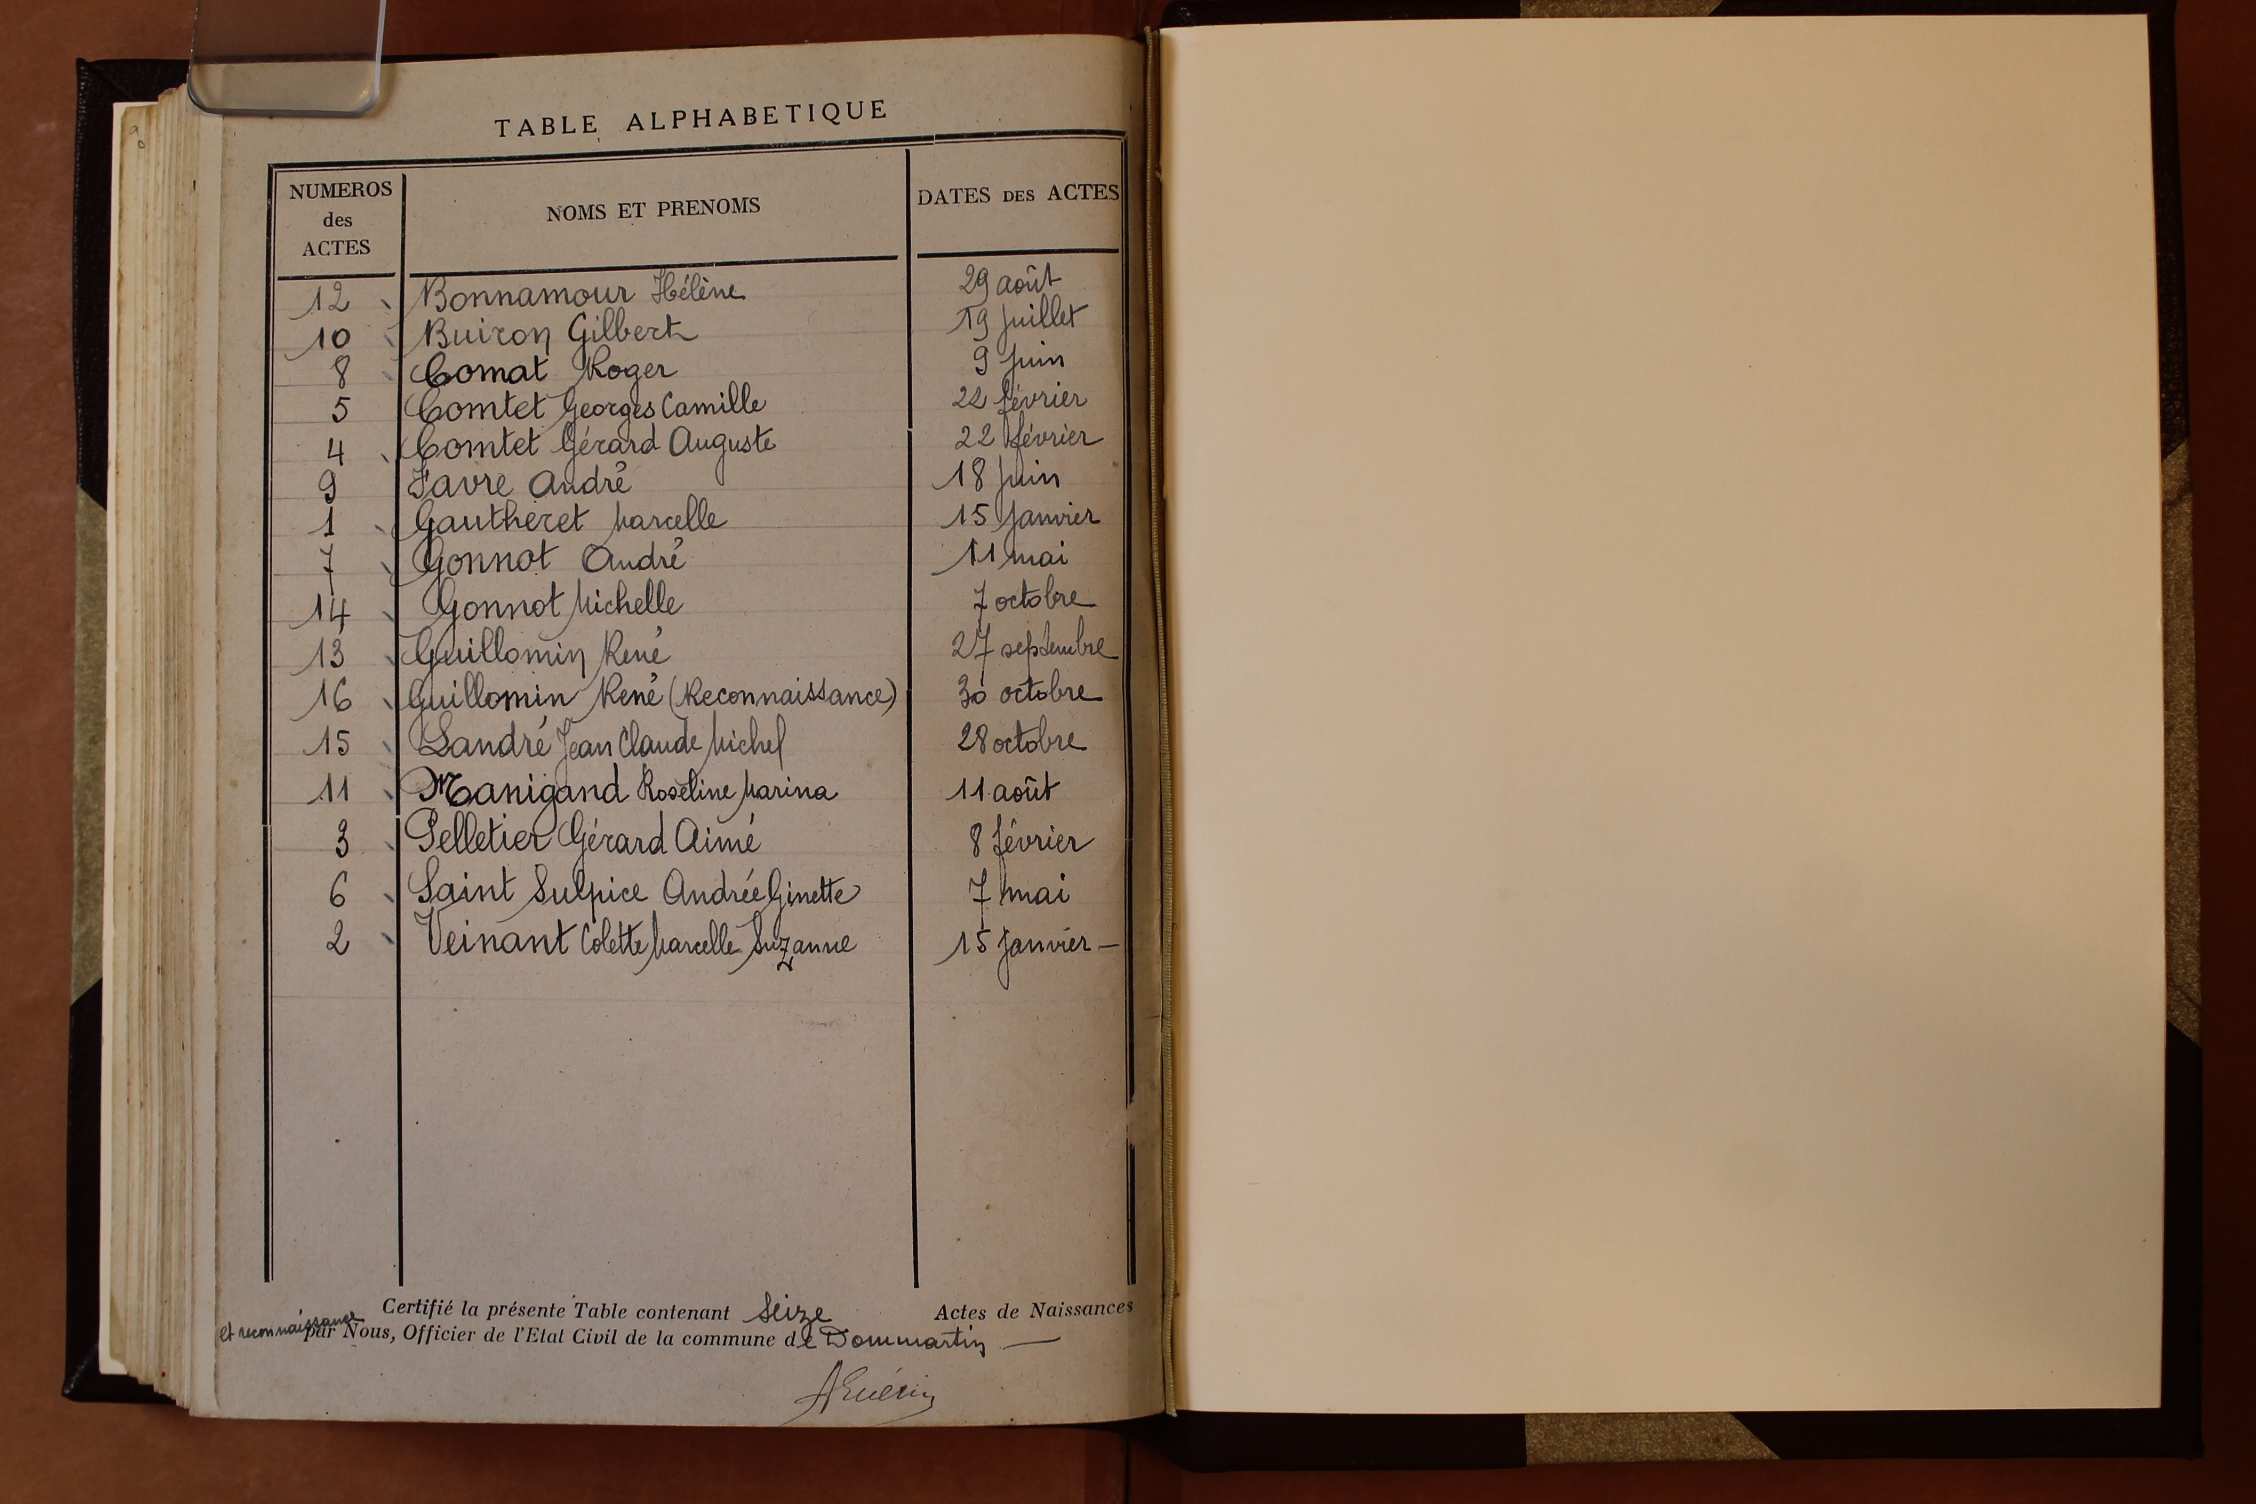 TABLE ALPHABETIQUE
NUMEROS des ACTES NOMS ET PRENOMS DATES DES ACTES
12 Bonnamour Hélène 29 août
10 Buiron Gilbert 19 juillet
8 Comat Roger 9 juin
5 Comtet Georges Camille 22 février
4 Comtet Gérard Auguste 22 février
9 Favre André 18 juin
1 Gautheret Marcelle 15 janvier
7 Gonnot André 11 mai
14 Gonnot Michelle 7 octobre
13 Guillomin René 27 septembre
16 Guillomin René (Reconnaissance) 30 octobre
15 Landré Jean Claude Michel 28 octobre
11 Manigand Roseline Marina 11 août
3 Pelletier Gérard Aimé 8 février
6 Saint Sulpice Andrée Ginette 7 mai
2 Veinant Colette Marcelle Suzanne 15 janvier —
Certifié la présente Table contenant Seize Actes de Naissances
et reconnaissance par Nous, Officier de l'Etat Civil de la commune de Dommartin —
AGuérin